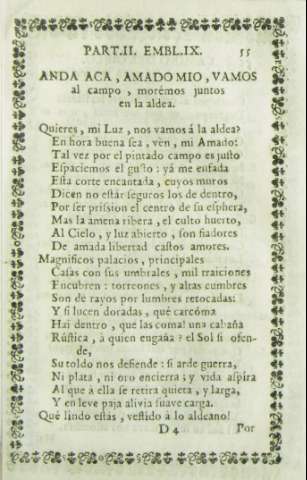 PART.II. EMBL.IX. 55
ANDA ACA, AMADO MIO, VAMOS
al campo, morémos juntos
en la aldea.
Quieres, mi Luz, nos vamos á la aldea?
En hora buena sea, vèn, mi Amado:
Tal vez por el pintado campo es justo
Espaciemos el gusto: yá me enfada
Esta corte encantada, cuyos muros
Dicen no estár seguros los de dentro,
Por ser prission el centro de su esphera,
Mas la amena ribera, el culto huerto,
Al Cielo, y luz abierto, son fiadores
De amada libertad castos amores.
Magnificos palacios, principales
Casas con sus umbrales, mil traiciones
Encubren: torreones, y altas cumbres
Son de rayos por lumbres retocadas:
Y si lucen doradas, què carcóma
Hai dentro, que las coma! una cabaña
Rústica, à quien engaña? el Sol si ofen-
de,
Su toldo nos defiende: si arde guerra,
Ni plata, ni oro encierra; y vida aspira
Al que à ella se retira quieta, y larga,
Y en leve paja alivia suave carga.
Qué lindo estás, vestido á lo aldeano!
D 4 Por